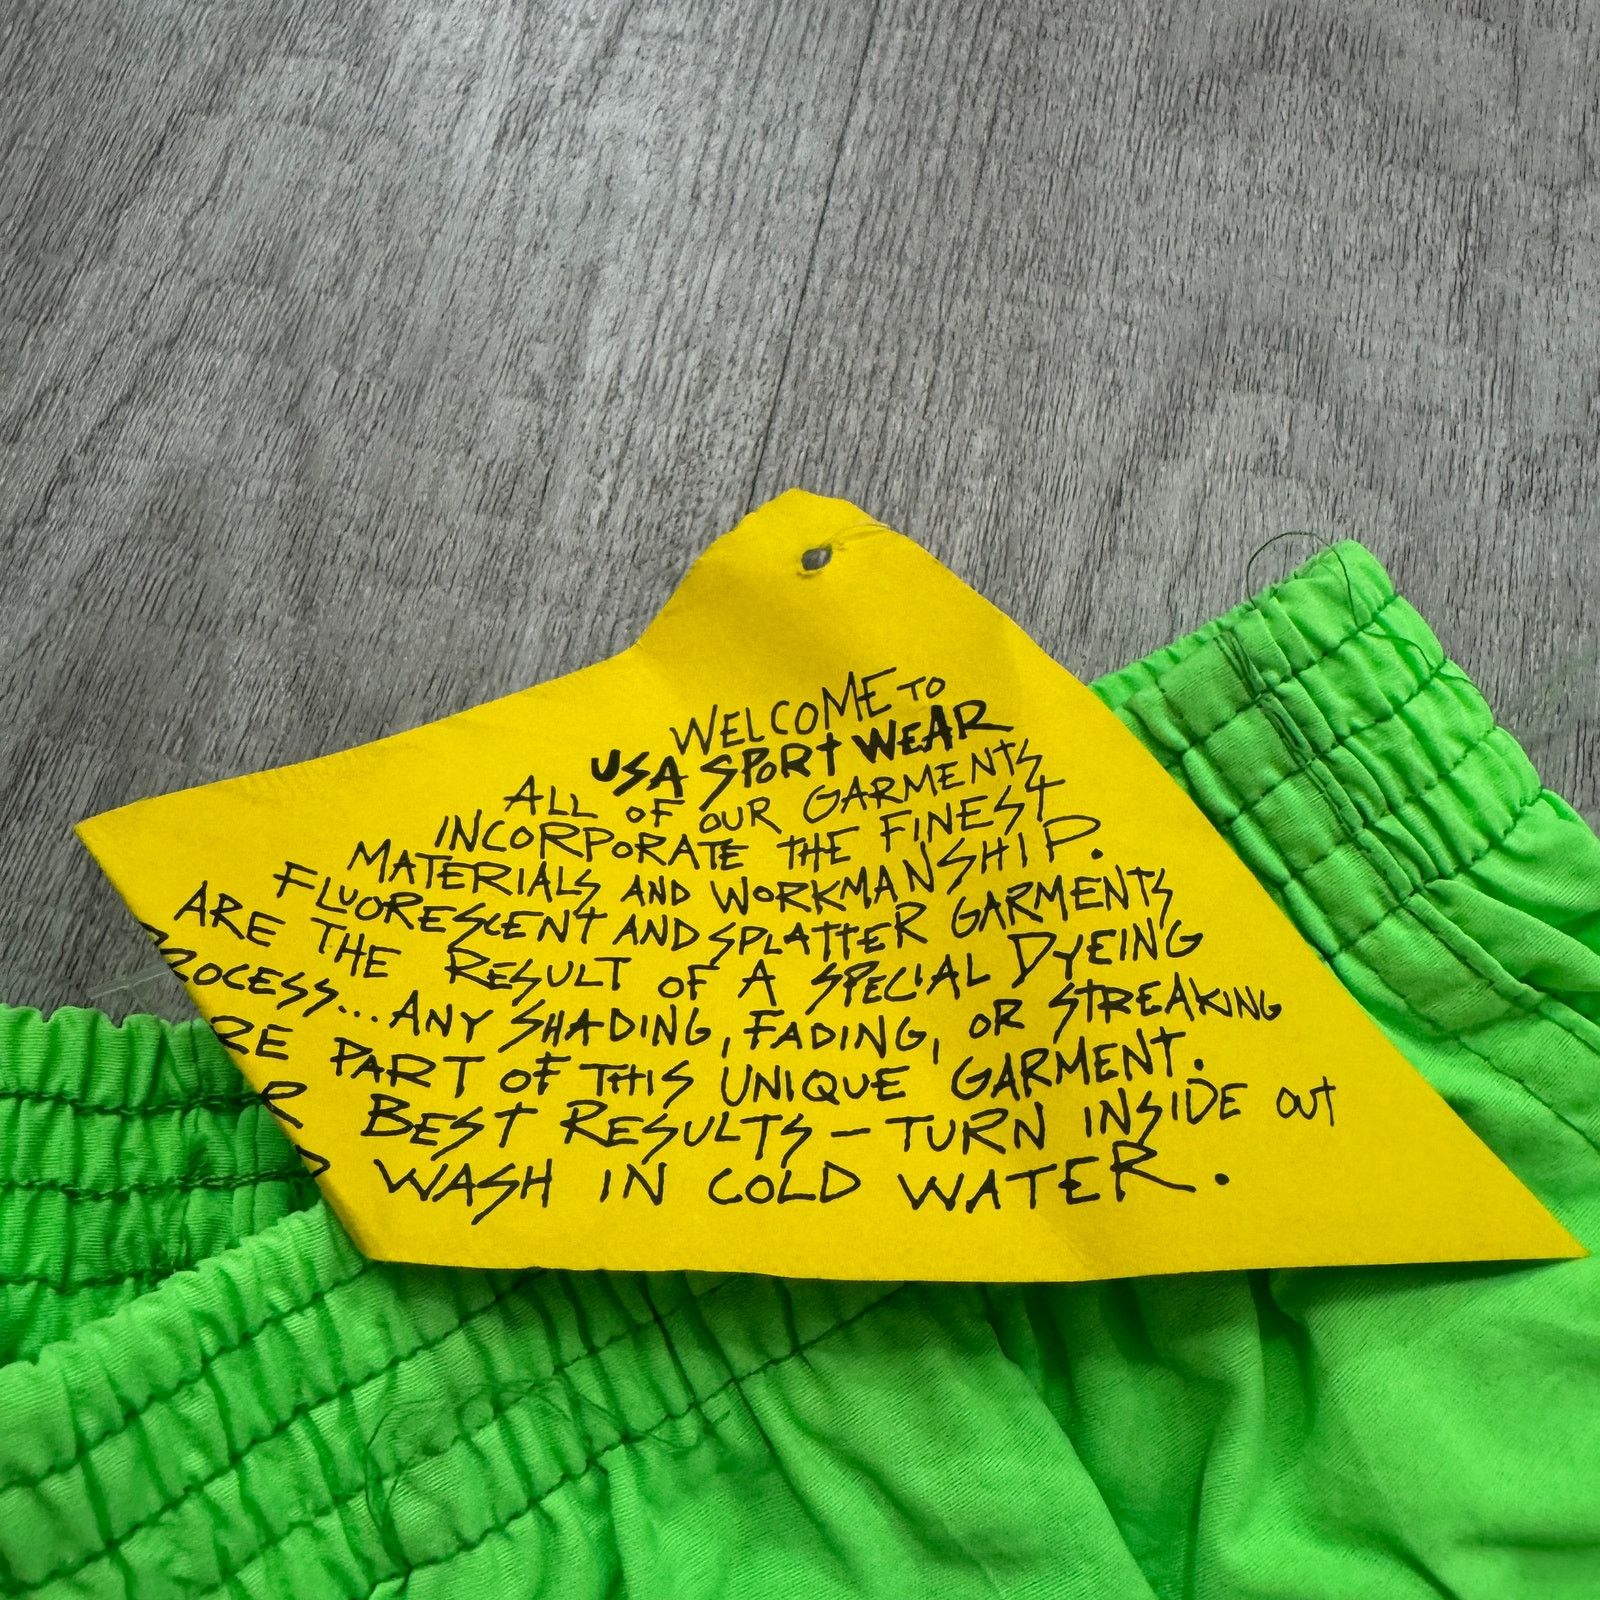 WELCOME TO
USA SPORT WEAR
ALL OF OUR GARMENTS
INCORPORATE THE FINEST
MATERIALS AND WORKMANSHIP.
FLUORESCENT AND SPLATTER GARMENTS
ARE THE RESULT OF A SPECIAL DYEING
ROCESS... ANY SHADING, FADING, OR STREAKING
RE PART OF THIS UNIQUE GARMENT.
R BEST RESULTS - TURN INSIDE OUT
WASH IN COLD WATER.